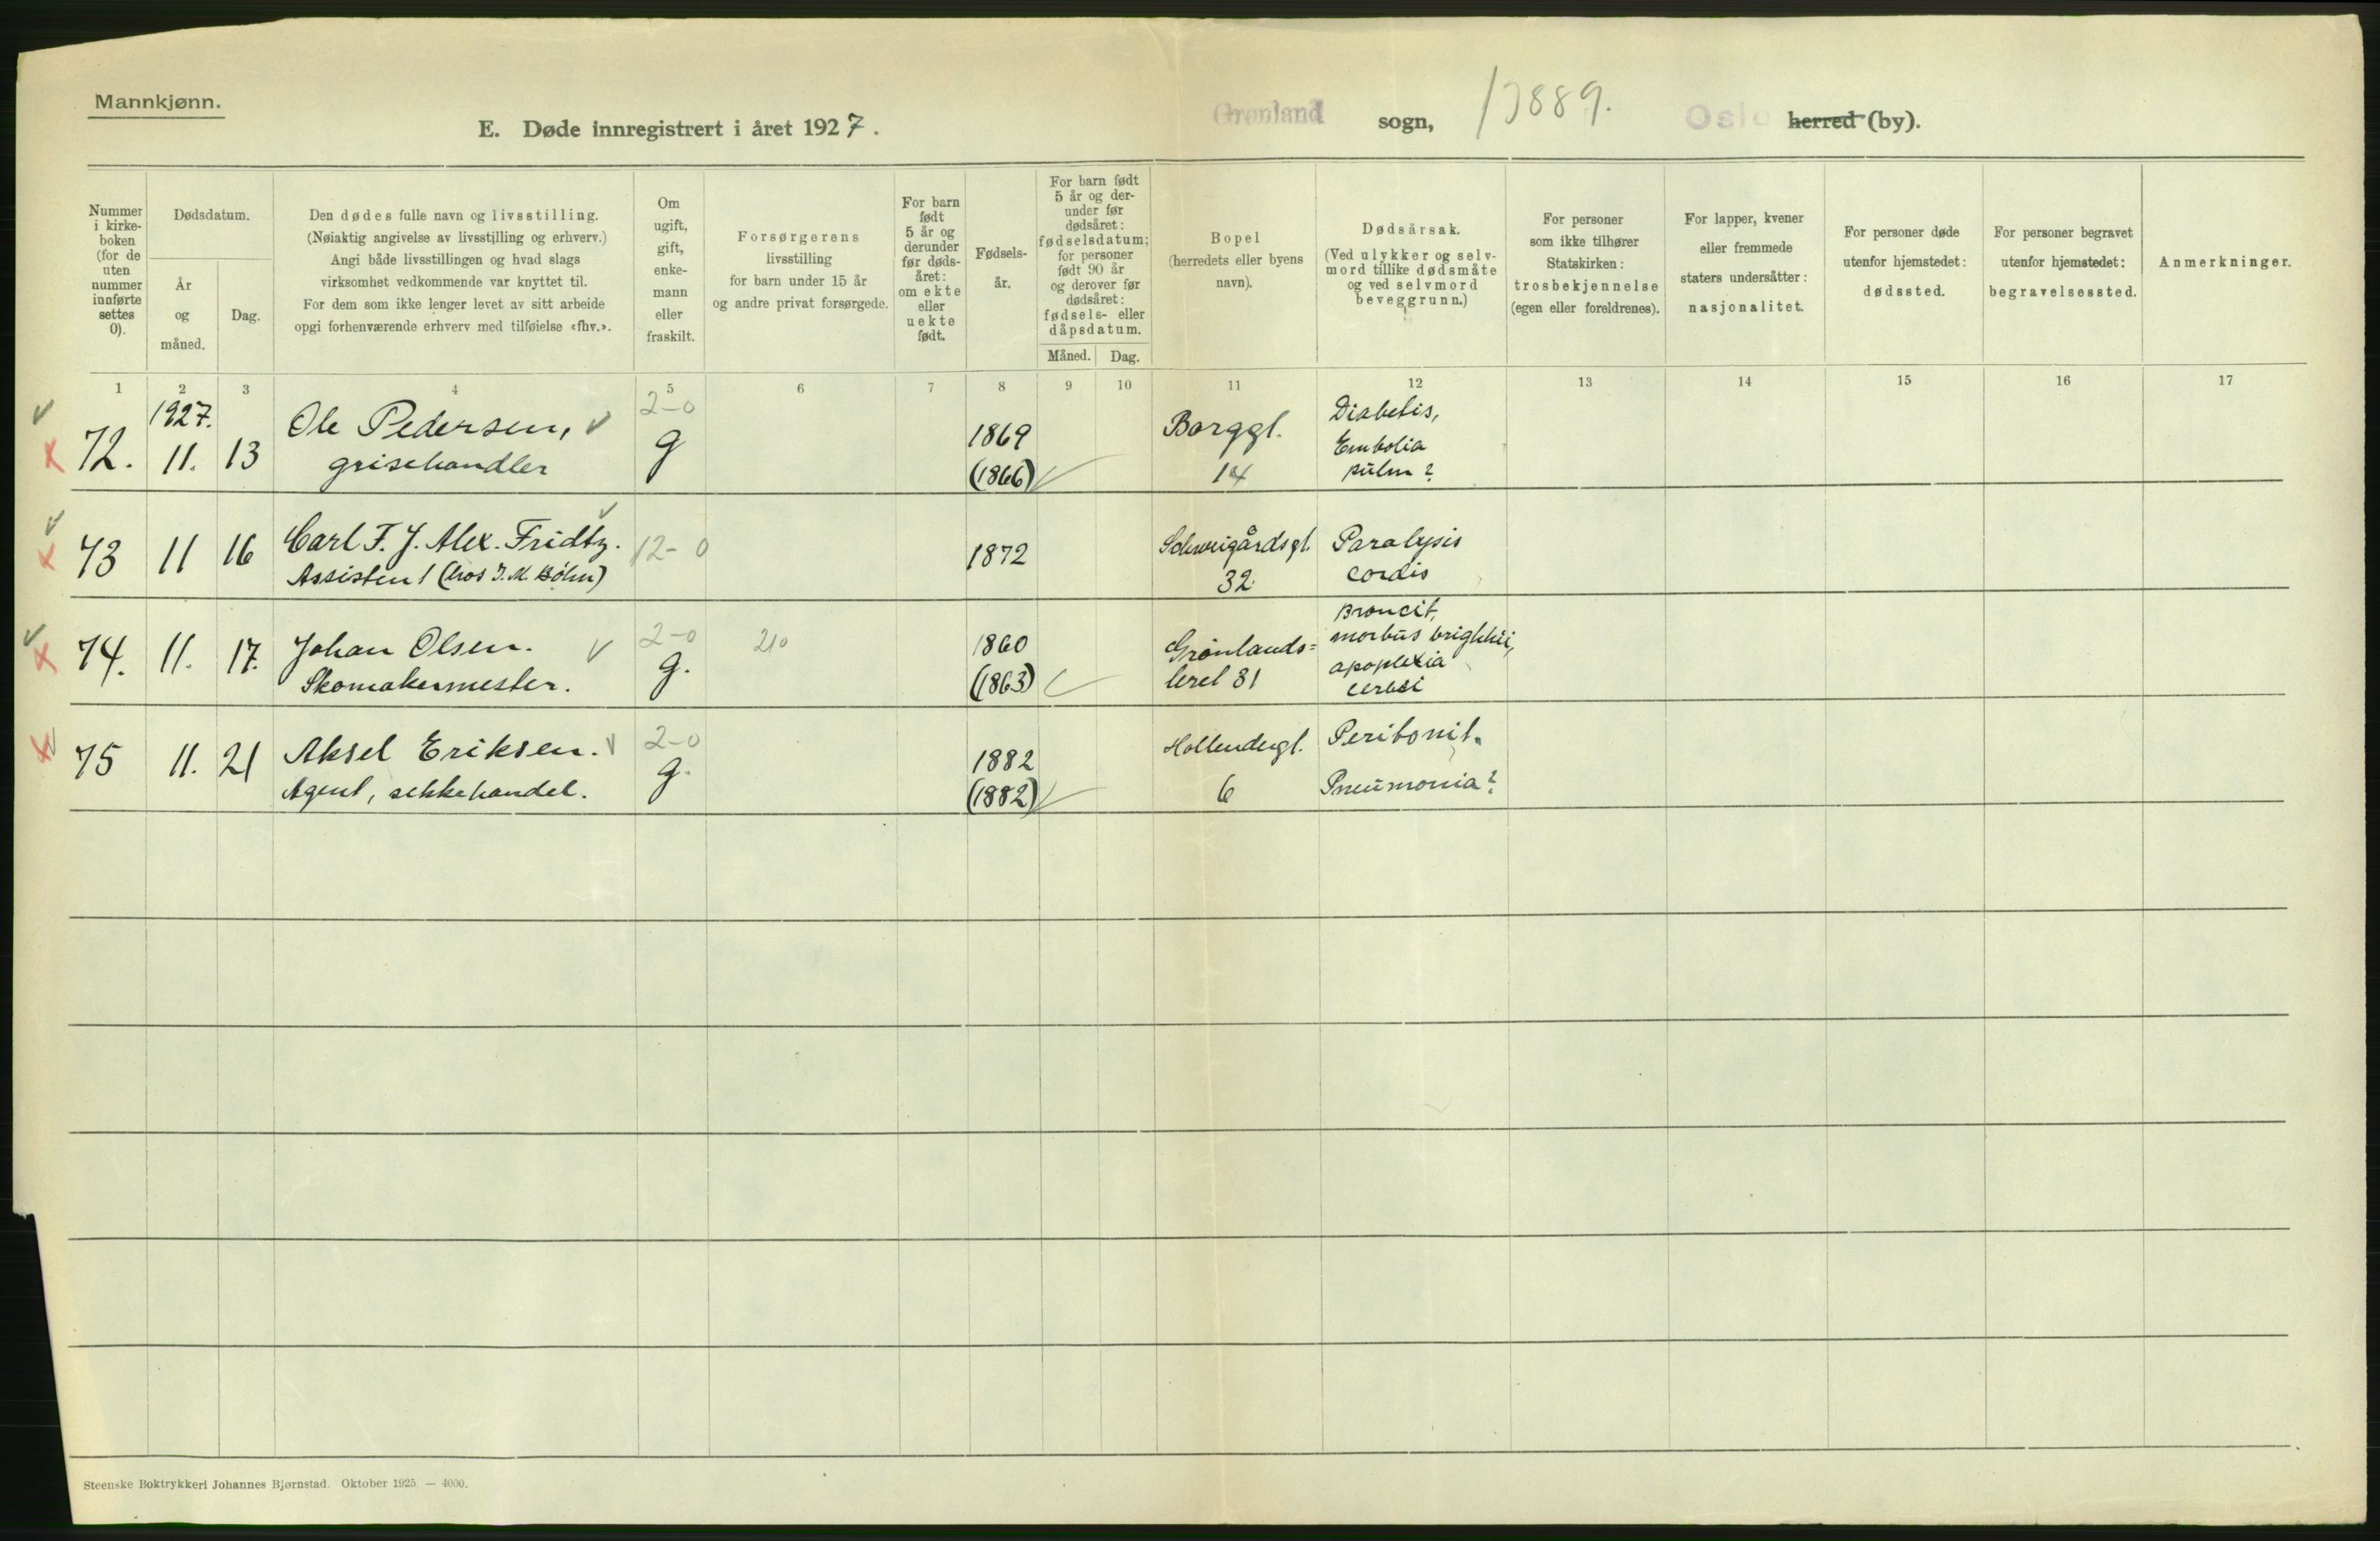 Mannkjønn.
E. Døde innregistrert i året 1927.
Grønland sogn, 13889. Oslo herred (by).
Nummer i kirke-boken (for de uten nummer innførte settes 0).
Dødsdatum.
År og måned.
Dag.
Den dødes fulle navn og livsstilling.
(Nøiaktig angivelse av livsstilling og erhverv.)
Angi både livsstillingen og hvad slags
virksomhet vedkommende var knyttet til.
For dem som ikke lenger levet av sitt arbeide
opgi forhenværende erhverv med tilføielse «fhv.».
Om ugift, gift, enke-mann eller fraskilt.
Forsørgerens
livsstilling
for barn under 15 år
og andre privat forsørgede.
For barn født 5 år og derunder før døds-året: om ekte eller uekte født.
Fødsels-år.
For barn født 5 år og der-under før dødsåret: fødselsdatum; for personer født 90 år og derover før dødsåret: fødsels- eller dåpsdatum.
Måned. Dag.
Bopel
(herredets eller byens
navn).
Dødsårsak.
(Ved ulykker og selv-
mord tillike dødsmåte
og ved selvmord
beveggrunn.)
For personer
som ikke tilhører
Statskirken:
trosbekjennelse
(egen eller foreldrenes).
For lapper, kvener
eller fremmede
staters undersåtter:
nasjonalitet.
For personer døde
utenfor hjemstedet:
dødssted.
For personer begravet
utenfor hjemstedet:
begravelsessted.
Anmerkninger.
1 2 3 4 5 6 7 8 9 10 11 12 13 14 15 16 17
1927.
72. 11. 13 Ole Pedersen, grisehandler 2-0 g 1869 (1866) Borggt. 14 Diabetis, Embolia pulm?
73 11 16 Carl F. J. Alex. Fridtz. Assistent (hos J. M. Bøhn) 12-0 1872 Schweigårdsgt. 32 Paralysis cordis
74. 11. 17. Johan Olsen. Skomakermester. 2-0 g. 210 1860 (1863) Grønlands=leret 31 Broncit, morbus brightii, apoplexia cerebi
75 11. 21 Aksel Eriksen. Agent, sekkehandel. 2-0 g. 1882 (1882) Hollendergt. 6 Peritonit. Pneumonia?
Steenske Boktrykkeri Johannes Bjørnstad. Oktober 1925. — 4000.